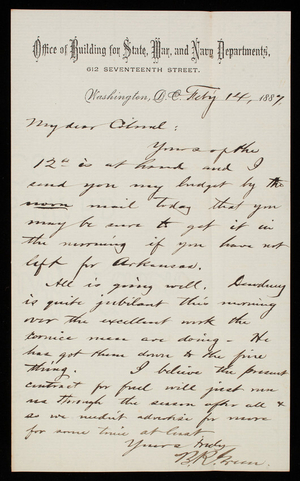 Office of Building for State, War, and Navy Departments,
612 SEVENTEENTH STREET.
Washington, D.C. Feby 14, 1887.
My dear Colonel:
Yours of the
12th is at hand and I
send you my budget by the
noon mail today that you
may be sure to get it in
the morning if you have not
left for Arkansas.
All is going well.
is quite jubilant this morning
over the excellent work the
cornice men are doing - He
has got them down to the fine
thing. I believe the present
contract for fuel will just run
us through the season after all &
so we needn't advertise for more
for some time at least
Yours truly
B.R. Green.